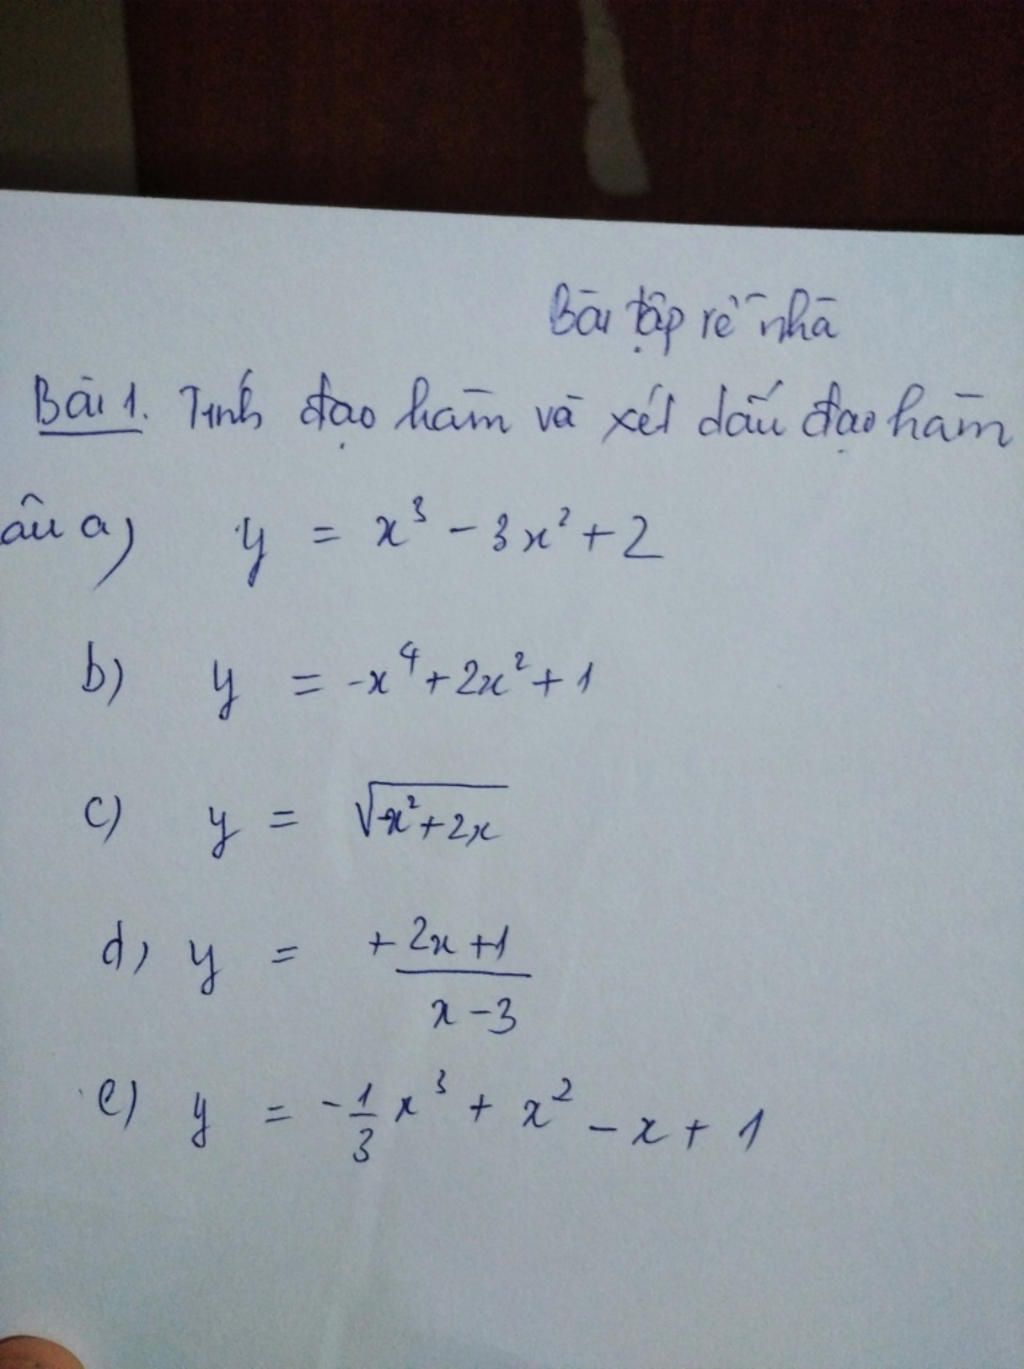 Bài tập về nhà
Bài 1. Tính đạo hàm và xét dấu đạo hàm
âu a) y = x³ - 3x² + 2
b) y = -x⁴ + 2x² + 1
c) y = √(-x² + 2x)
d) y = (+2x + 1)/(x - 3)
e) y = -1/3 x³ + x² - x + 1